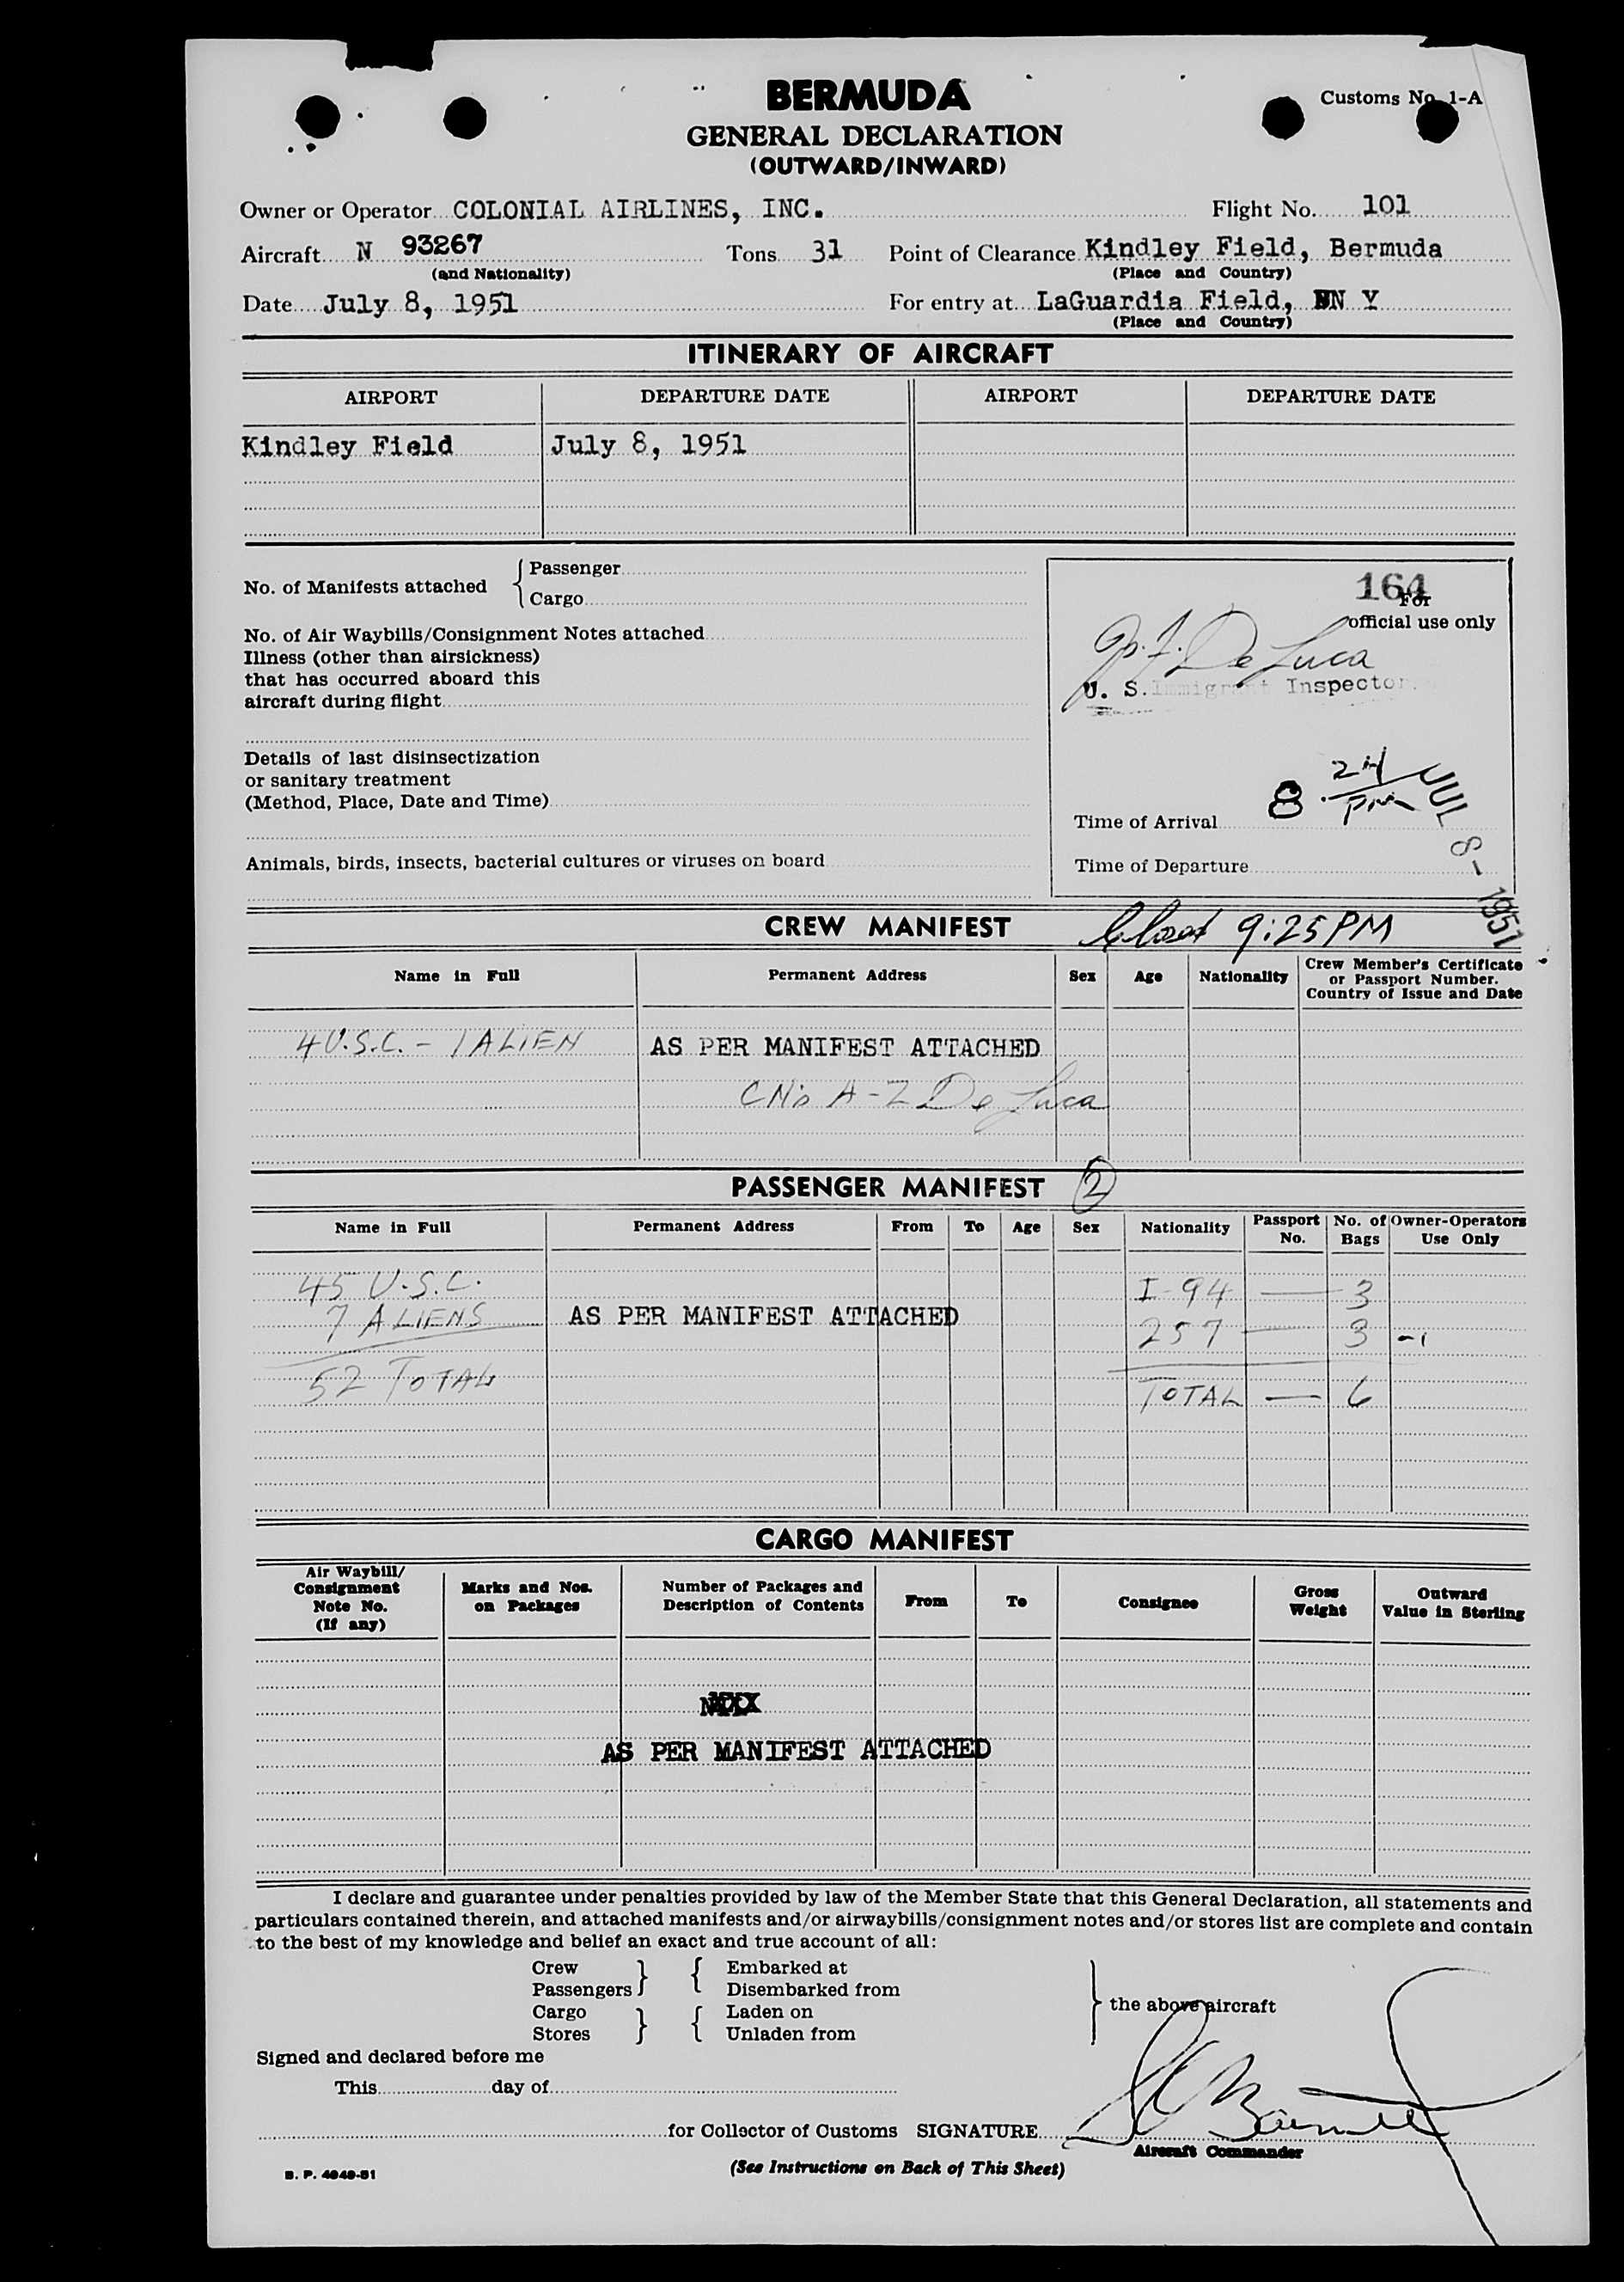 BERMUDA
Customs No. 1-A
GENERAL DECLARATION
(OUTWARD/INWARD)
Owner or Operator COLONIAL AIRLINES, INC. Flight No. 101
Aircraft N 93267 Tons 31 Point of Clearance Kindley Field, Bermuda
(and Nationality) (Place and Country)
Date July 8, 1951 For entry at LaGuardia Field, N Y
(Place and Country)
ITINERARY OF AIRCRAFT
AIRPORT DEPARTURE DATE AIRPORT DEPARTURE DATE
Kindley Field July 8, 1951
No. of Manifests attached { Passenger
Cargo
164
For
official use only
No. of Air Waybills/Consignment Notes attached
Illness (other than airsickness)
that has occurred aboard this
aircraft during flight
De Luca
U. S. Immigrant Inspector
Details of last disinsectization
or sanitary treatment
(Method, Place, Date and Time)
Time of Arrival 8 24 PM
JUL 8 - 1951
Animals, birds, insects, bacterial cultures or viruses on board
Time of Departure
CREW MANIFEST Closed 9:25 PM
Name in Full Permanent Address Sex Age Nationality Crew Member's Certificate
or Passport Number.
Country of Issue and Date
4 U.S.C. - 1 ALIEN AS PER MANIFEST ATTACHED
A-2 De Luca
PASSENGER MANIFEST 2
Name in Full Permanent Address From To Age Sex Nationality Passport No. No. of Bags Owner-Operators Use Only
45 U.S.C. I-94 — 3
7 ALIENS AS PER MANIFEST ATTACHED 257 — 3 -1
52 TOTAL TOTAL — 6
CARGO MANIFEST
Air Waybill/
Consignment
Note No.
(If any)
Marks and Nos.
on Packages
Number of Packages and
Description of Contents
From To Consignee
Gross
Weight
Outward
Value in Sterling
AS PER MANIFEST ATTACHED
I declare and guarantee under penalties provided by law of the Member State that this General Declaration, all statements and
particulars contained therein, and attached manifests and/or airwaybills/consignment notes and/or stores list are complete and contain
to the best of my knowledge and belief an exact and true account of all:
Crew } { Embarked at
Passengers Disembarked from
Cargo } { Laden on
Stores Unladen from
} the above aircraft
Signed and declared before me
This day of
for Collector of Customs SIGNATURE
Aircraft Commander
B. P. 4949-51
(See Instructions on Back of This Sheet)